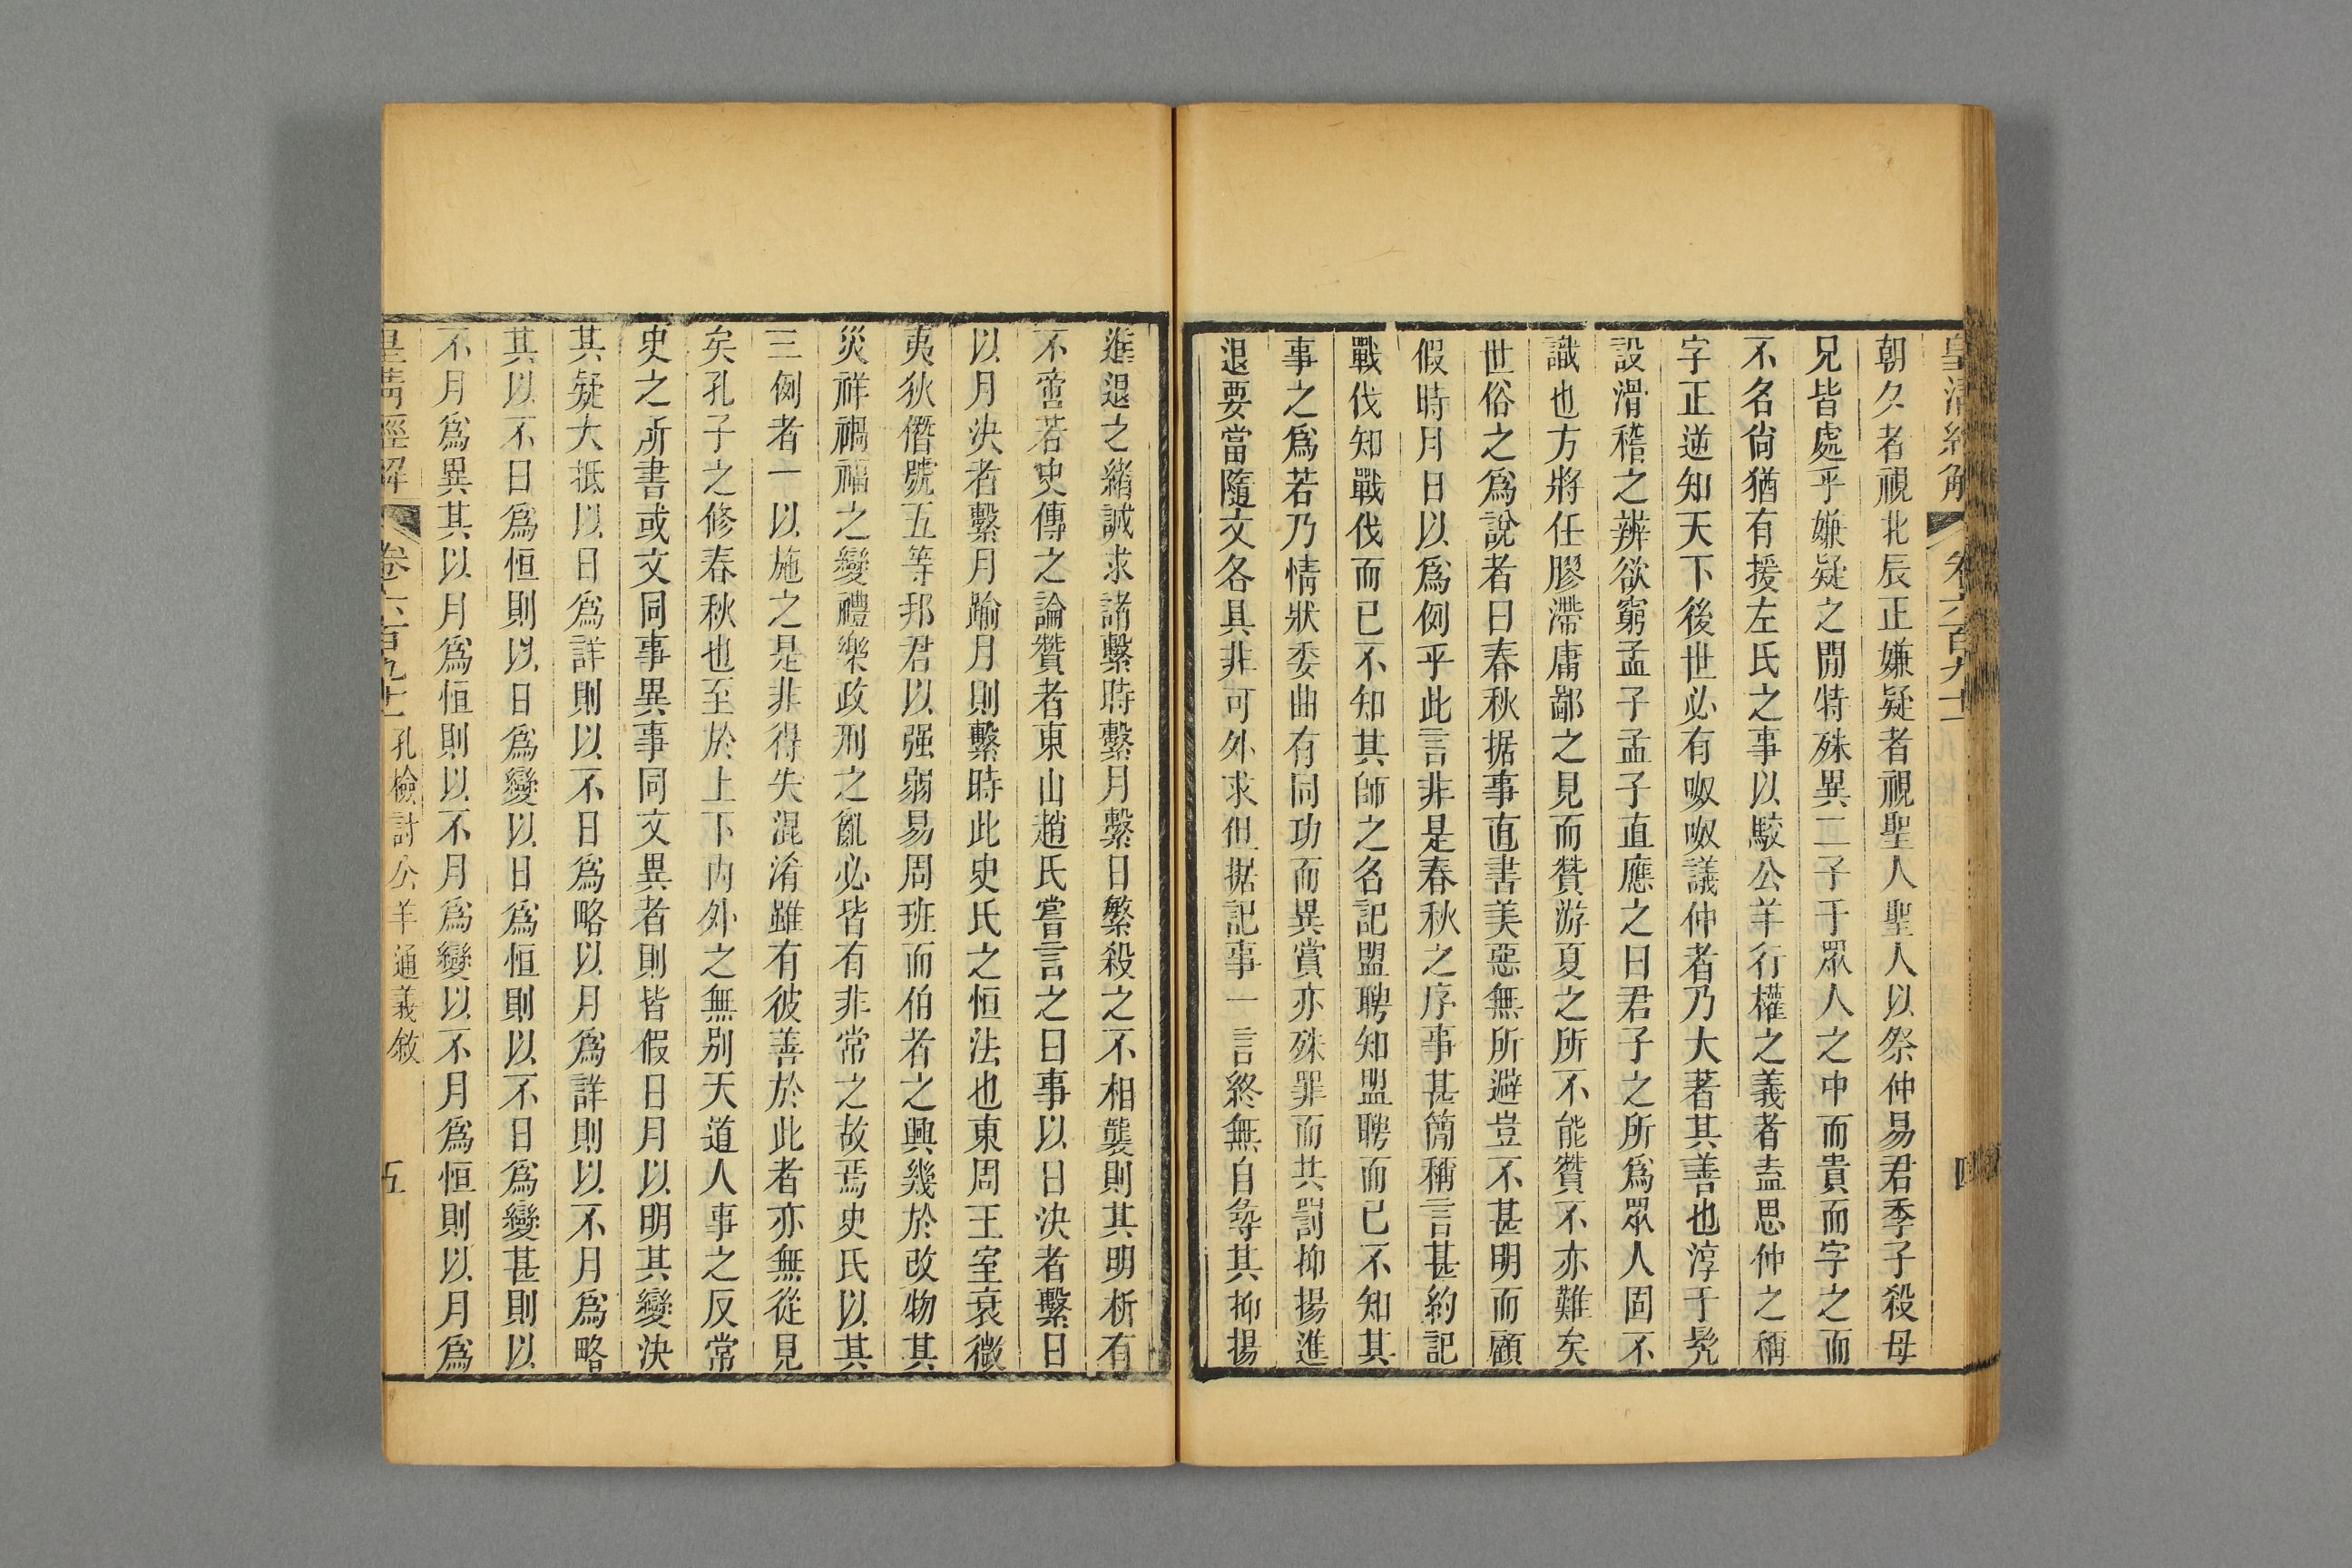 皇清經解 卷六百九十一 四
朝夕者視北辰正嫌疑者視聖人聖人以祭仲易君季子殺母
兄皆處乎嫌疑之閒特殊異二子于眾人之中而貴而字之而
不名尙猶有援左氏之事以駮公羊行權之義者盍思仲之稱
字正逆知天下後世必有呶呶議仲者乃大著其善也淳于髡
設滑稽之辨欲窮孟子孟子直應之曰君子之所爲眾人固不
識也方將任膠滯庸鄙之見而贊游夏之所不能贊不亦難矣
世俗之爲說者曰春秋据事直書美惡無所避豈不甚明而顧
假時月日以爲例乎此言非是春秋之序事甚簡稱言甚約記
戰伐知戰伐而已不知其師之名記盟聘知盟聘而已不知其
事之爲若乃情狀委曲有同功而異賞亦殊罪而共罰抑揚進
退要當隨文各具非可外求但据記事一言終無自尋其抑揚
進退之緒誠求諸繫時繫月繫日繁殺之不相襲則其明析有
不啻若史傳之論贊者東山趙氏嘗言之曰事以日決者繫日
以月決者繫月踰月則繫時此史氏之恒法也東周王室衰微
夷狄僭號五等邦君以强弱易周班而伯者之興幾於改物其
災祥禍福之變禮樂政刑之亂必皆有非常之故焉史氏以其
三例者一以施之是非得失混淆雖有彼善於此者亦無從見
矣孔子之修春秋也至於上下內外之無別天道人事之反常
史之所書或文同事異事同文異者則皆假日月以明其變決
其疑大抵以日爲詳則以不日爲略以月爲詳則以不月爲略
其以不日爲恒則以日爲變以日爲恒則以不日爲變甚則以
不月爲異其以月爲恒則以不月爲變以不月爲恒則以月爲
皇淸經解 卷六百九十一 孔檢討公羊通義敘 五